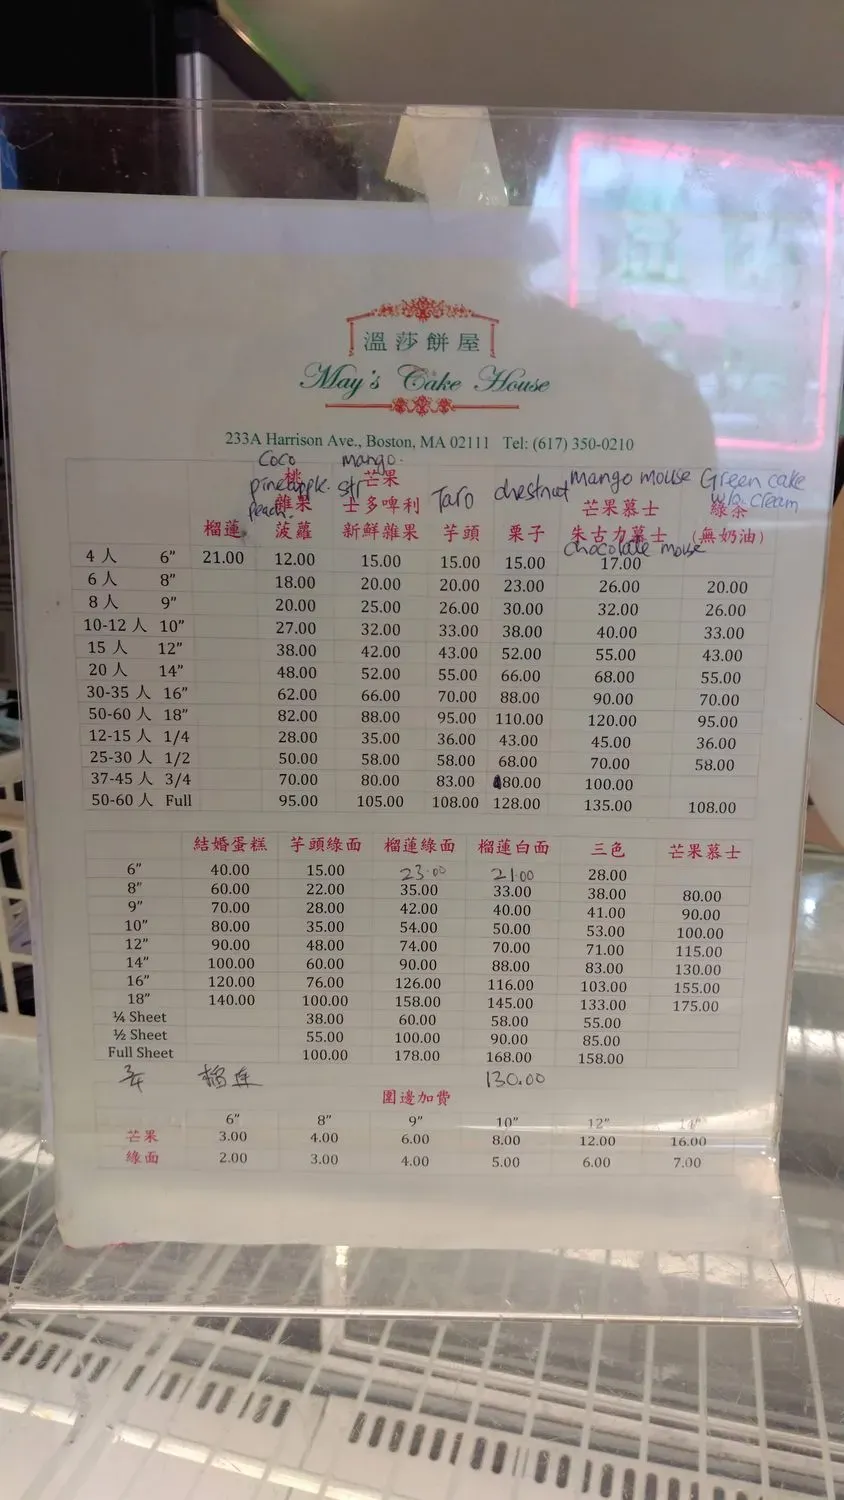 溫莎餅屋
May's Cake House
233A Harrison Ave., Boston, MA 02111 Tel: (617) 350-0210
Coco mango.
桃 芒果 mango mouse Green cake
pineapple. str Taro chestnut w/o cream
雜果 士多啤梨 芒果慕士 綠茶
peach.
榴蓮 菠蘿 新鮮雜果 芋頭 栗子 朱古力慕士 (無奶油)
chocolate mouse
4 人 6" 21.00 12.00 15.00 15.00 15.00 17.00
6 人 8" 18.00 20.00 20.00 23.00 26.00 20.00
8 人 9" 20.00 25.00 26.00 30.00 32.00 26.00
10-12 人 10" 27.00 32.00 33.00 38.00 40.00 33.00
15 人 12" 38.00 42.00 43.00 52.00 55.00 43.00
20 人 14" 48.00 52.00 55.00 66.00 68.00 55.00
30-35 人 16" 62.00 66.00 70.00 88.00 90.00 70.00
50-60 人 18" 82.00 88.00 95.00 110.00 120.00 95.00
12-15 人 1/4 28.00 35.00 36.00 43.00 45.00 36.00
25-30 人 1/2 50.00 58.00 58.00 68.00 70.00 58.00
37-45 人 3/4 70.00 80.00 83.00 80.00 100.00
50-60 人 Full 95.00 105.00 108.00 128.00 135.00 108.00
結婚蛋糕 芋頭綠面 榴蓮綠面 榴蓮白面 三色 芒果慕士
6" 40.00 15.00 23.00 21.00 28.00
8" 60.00 22.00 35.00 33.00 38.00 80.00
9" 70.00 28.00 42.00 40.00 41.00 90.00
10" 80.00 35.00 54.00 50.00 53.00 100.00
12" 90.00 48.00 74.00 70.00 71.00 115.00
14" 100.00 60.00 90.00 88.00 83.00 130.00
16" 120.00 76.00 126.00 116.00 103.00 155.00
18" 140.00 100.00 158.00 145.00 133.00 175.00
¼ Sheet 38.00 60.00 58.00 55.00
½ Sheet 55.00 100.00 90.00 85.00
Full Sheet 100.00 178.00 168.00 158.00
榴蓮 130.00
圍邊加費
6" 8" 9" 10" 12" 14"
芒果 3.00 4.00 6.00 8.00 12.00 16.00
綠面 2.00 3.00 4.00 5.00 6.00 7.00